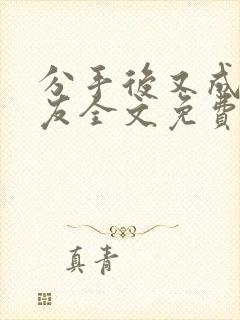 分手後又成
友全文免費
真青